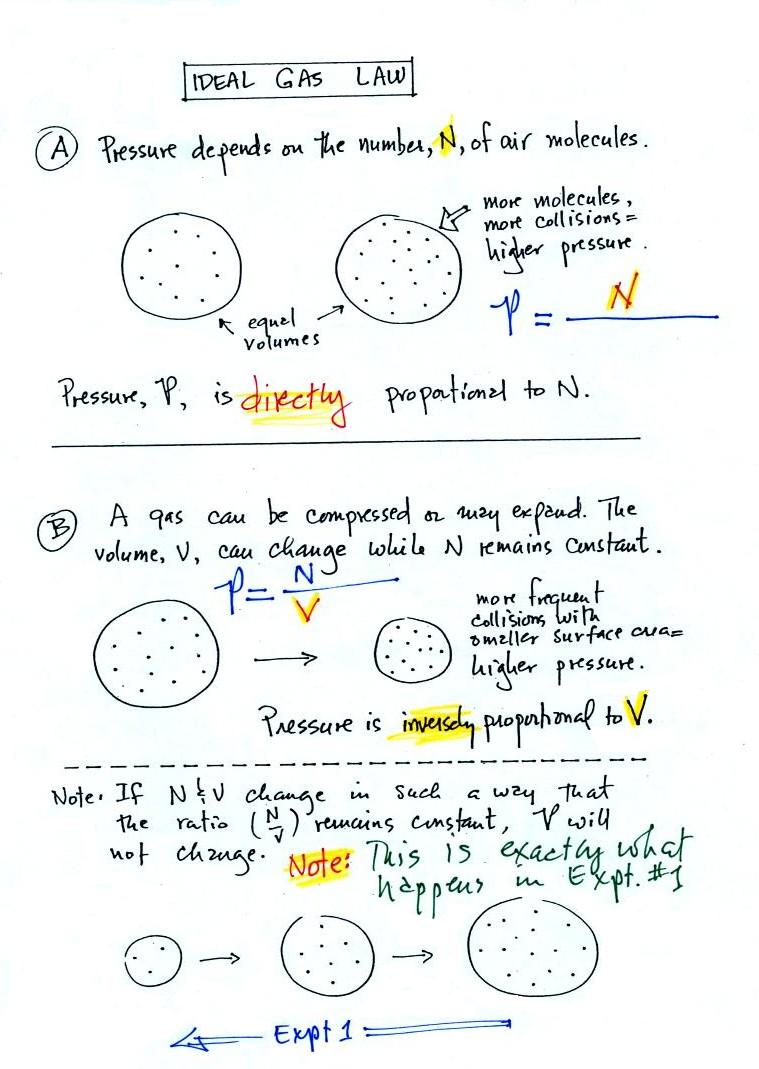 IDEAL GAS LAW
A Pressure depends on the number, N, of air molecules.
more molecules,
more collisions =
higher pressure.
P = N
equal
volumes
Pressure, P, is directly proportional to N.
B A gas can be compressed or may expand. The
volume, V, can change while N remains constant.
P = N
V
more frequent
collisions with
smaller surface area =
higher pressure.
Pressure is inversely proportional to V.
Note: If N & V change in such a way that
the ratio (N/V) remains constant, P will
not change. Note: This is exactly what
happens in Expt. #1
Expt 1